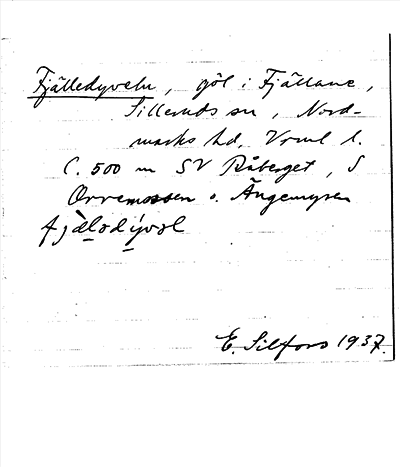 Fjälledyveln, göl i Fjällane,
Silleruds sn, Nord-
marks hd, Vrml l.
C. 500 m SV Råberget, S
Orremossen o. Ängemyren
fjälodývol
E. Silfors 1937.